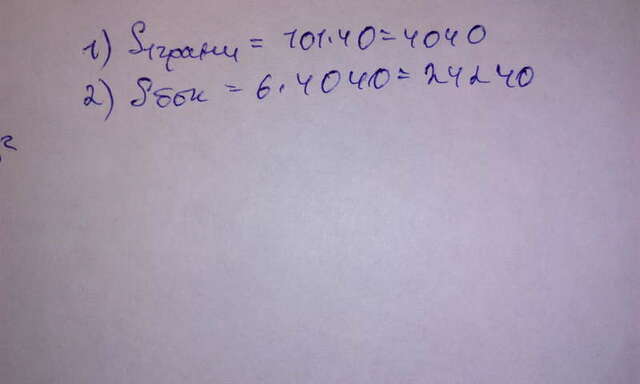 1) S1грани = 101.40=4040
2) Sбок = 6.4040=24240